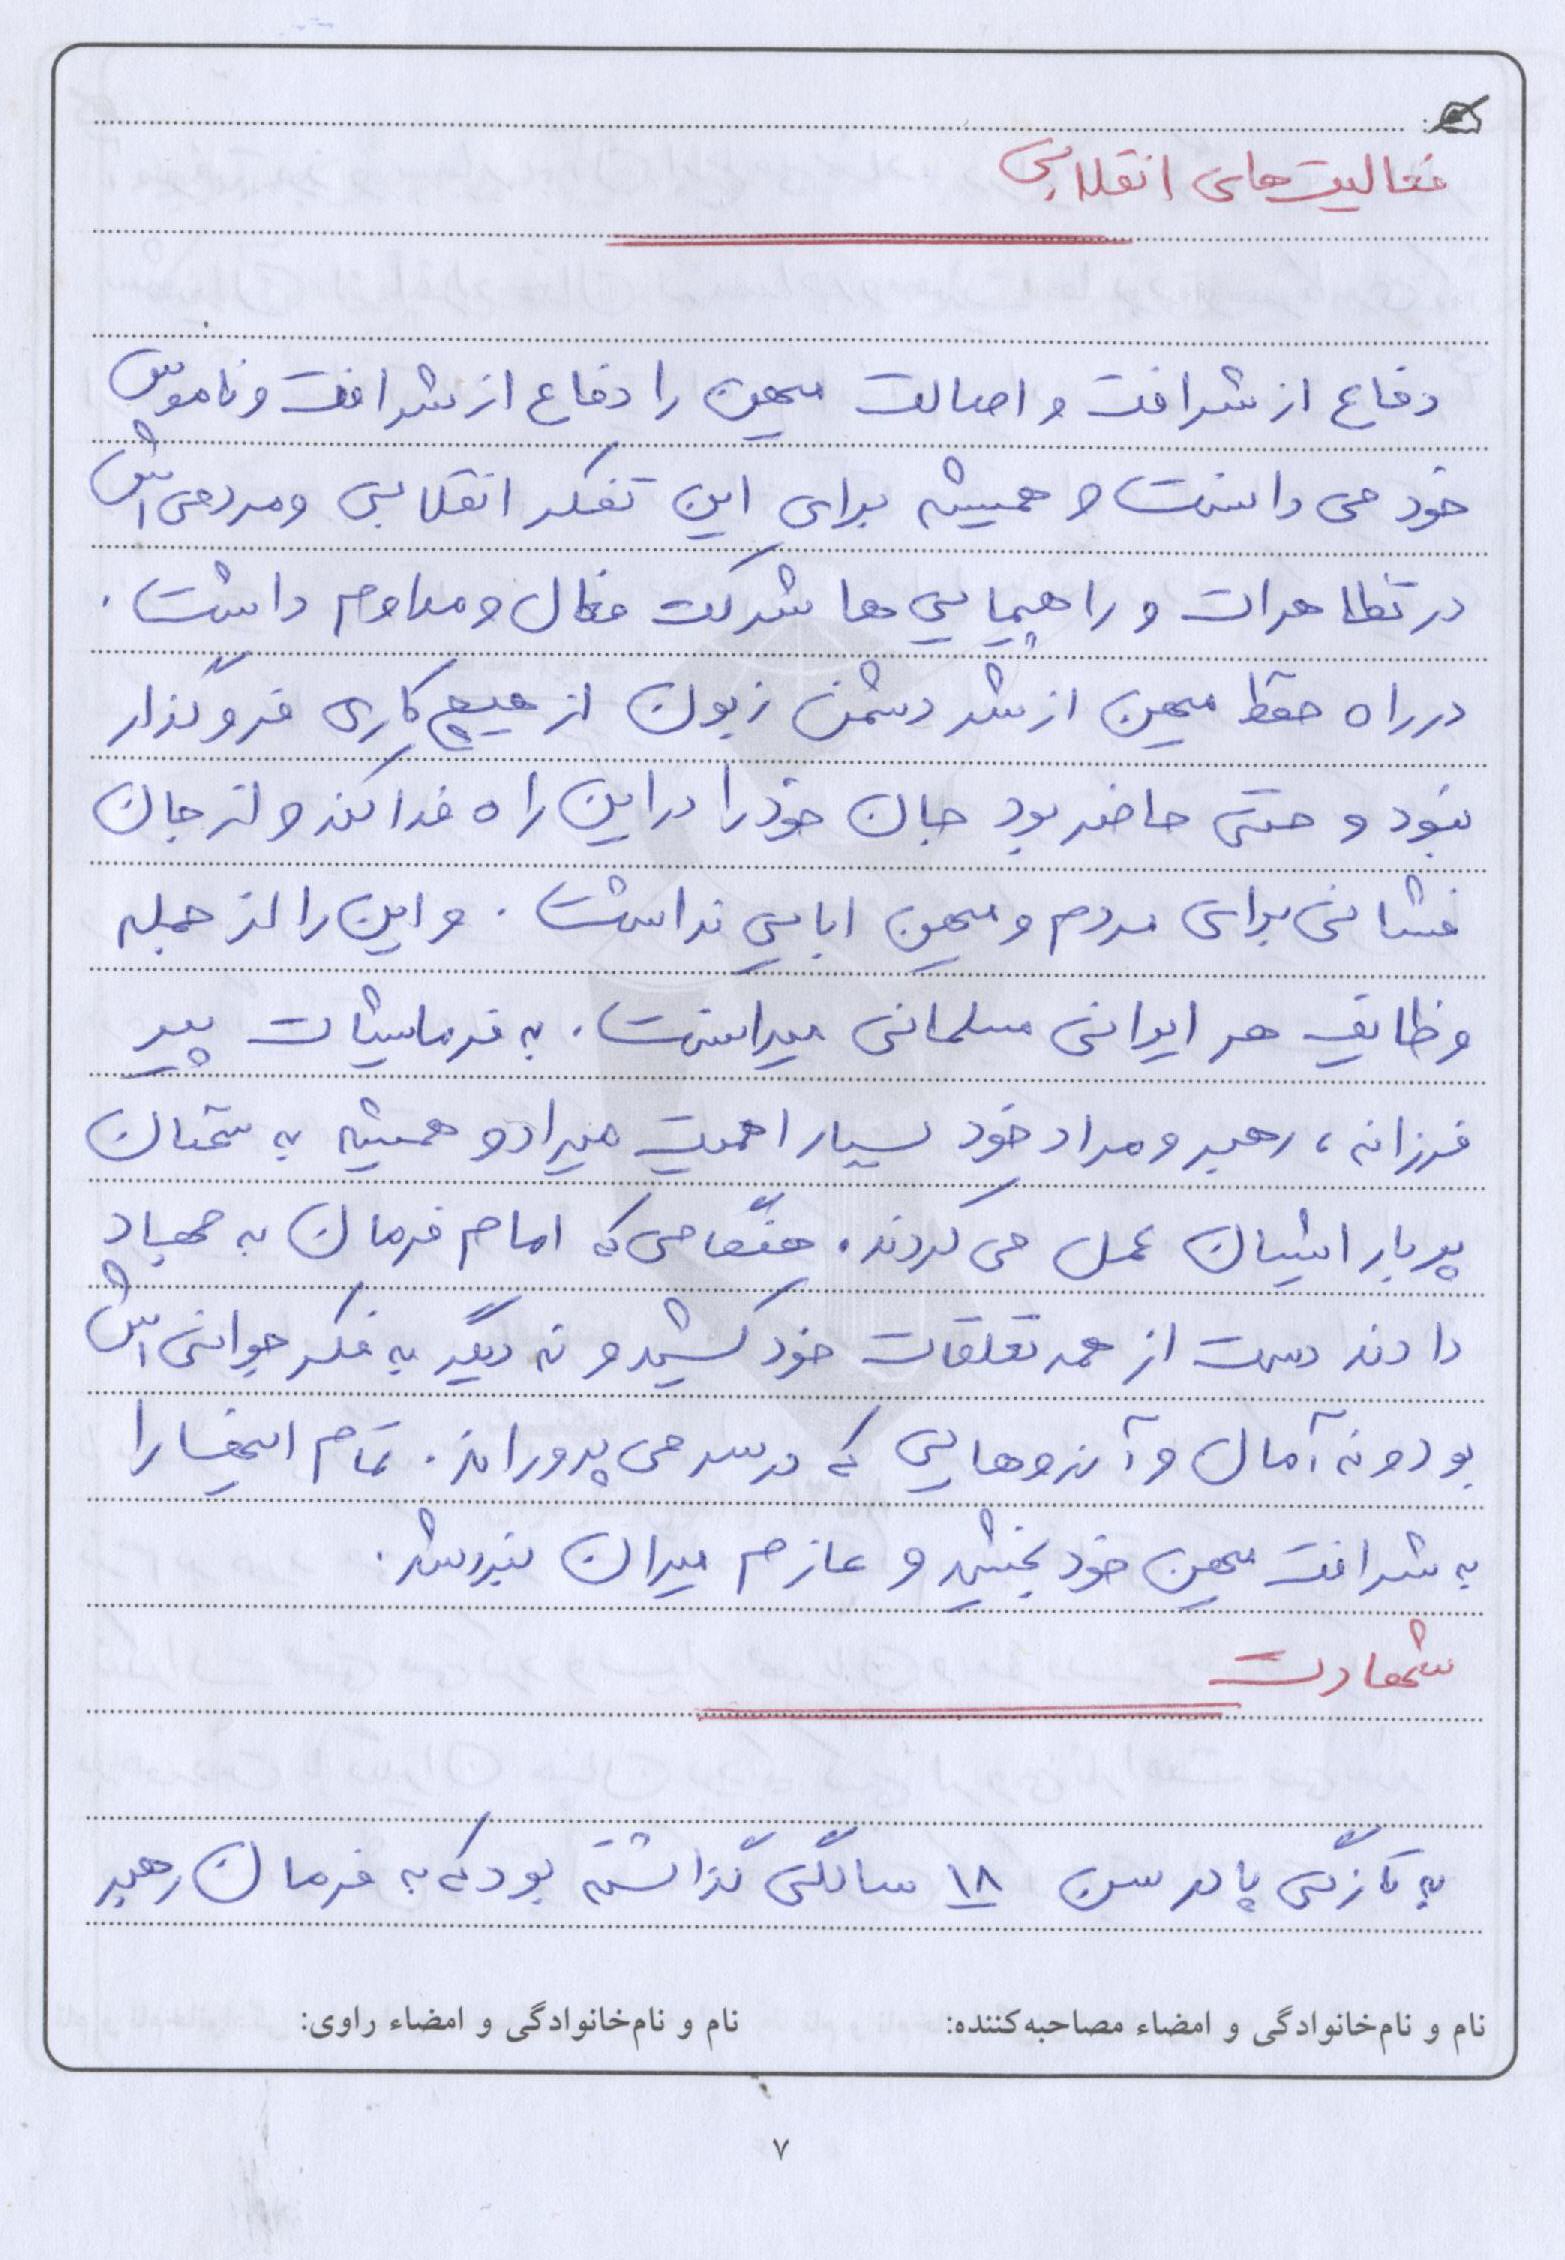 فعالیت‌های انقلابی
دفاع از شرافت و اصالت میهن را دفاع از شرافت و ناموس
خود می دانست و همیشه برای این تفکر انقلابی و مردمی اش
در تظاهرات و راهپیمایی ها شرکت فعال و مداوم داشت .
در راه حفظ میهن از شر دشمن زبون از هیچ کاری فروگذار
نبود و حتی حاضر بود جان خود را در این راه فدا کند و از جان
فشانی برای مردم و میهن ابایی نداشت . و این را از جمله
وظایف هر ایرانی مسلمانی میدانست . به فرمایشات پیر
فرزانه ، رهبر و مراد خود بسیار اهمیت میداد و همیشه به سخنان
پر بار ایشان عمل می کردند . هنگامی که امام فرمان به جهاد
دادند دست از همه تعلقات خود کشید و نه دیگر به فکر جوانی اش
بود و نه آمال و آرزوهایی که در سر می پروراند . تمام اینها را
به شرافت میهن خود بخشید و عازم میدان نبرد شد .
شهادت
به تازگی پا در سن ۱۸ سالگی گذاشته بود که به فرمان رهبر
نام و نام‌خانوادگی و امضاء مصاحبه‌کننده: نام و نام‌خانوادگی و امضاء راوی:
۷